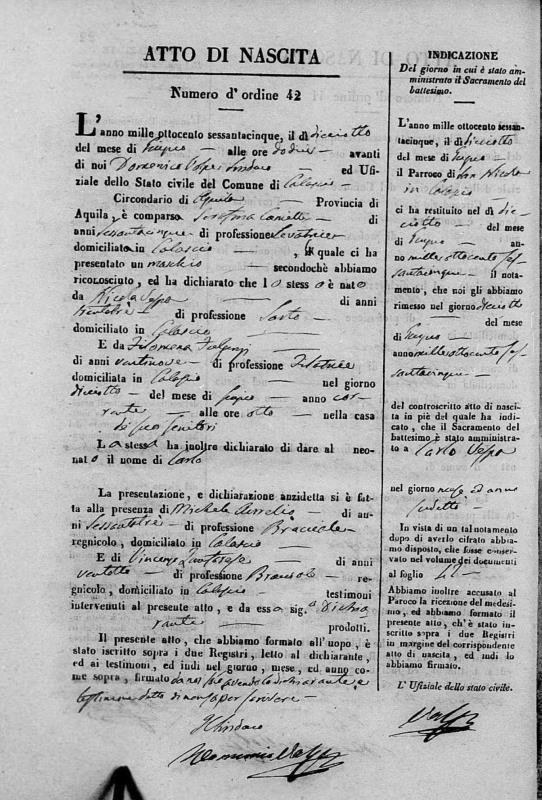 ATTO DI NASCITA
Numero d'ordine 42
L'anno mille ottocento sessantacinque, il dì dieciotto
del mese di Giugno alle ore dodici avanti
di noi Domenico Volpe Sindaco ed Ufi-
ziale dello Stato civile del Comune di Calascio
Circondario di Aquila Provincia di
Aquila, è comparsa Serafina di
anni sessantacinque di professione Levatrice
domiciliata in Calascio, il quale ci ha
presentato un maschio secondochè abbiamo
riconosciuto, ed ha dichiarato che lo stesso è nato
da Nicola di anni
trentatre di professione Sarto
domiciliato in Calascio
E da Filomena Fulgenzi
di anni ventinove di professione Filatrice
domiciliata in Calascio nel giorno
dieciotto del mese di Giugno anno cor-
rente alle ore otto nella casa
di suoi genitori
La stessa ha inoltre dichiarato di dare al neo-
nato il nome di Carlo
La presentazione, e dichiarazione anzidetta si è fat-
ta alla presenza di Michele Aurelio di an-
ni sessantatre di professione Bracciale
regnicolo, domiciliato in Calascio
E di Vincenzo di anni
ventotto di professione Bracciale re-
gnicolo, domiciliato in Calascio testimoni
intervenuti al presente atto, e da essa sig.a Dichia-
rante prodotti.
Il presente atto, che abbiamo formato all'uopo, è
stato iscritto sopra i due Registri, letto al dichiarante,
ed ai testimoni, ed indi nel giorno, mese, ed anno co-
me sopra, firmato da noi avendo la dichiarante e
testimoni detto di non saper scrivere
Il Sindaco
Domenico Volpe
INDICAZIONE
Del giorno in cui è stato am-
ministrato il Sacramento del
battesimo.
L'anno mille ottocento sessan-
tacinque, il dì dieciotto
del mese di Giugno
il Parroco di San Nicola
in Calascio
ci ha restituito nel dì die-
ciotto del mese
di Giugno an-
no mille ottocento ses-
santacinque il nota-
mento, che noi gli abbiamo
rimesso nel giorno dieciotto
del mese
di Giugno
anno mille ottocento ses-
santacinque
del controscritto atto di nasci-
ta in piè del quale ha indi-
cato, che il Sacramento del
battesimo è stato amministra-
to a Carlo
nel giorno mese ed anno
sudetto
In vista di un tal notamento
dopo di averlo cifrato abbia-
mo disposto, che fosse conser-
vato nel volume dei documenti
al foglio 42
Abbiamo inoltre accusato al
Paroco la ricezione del medesi-
mo, ed abbiamo formato il
presente atto, ch'è stato in-
scritto sopra i due Registri
in margine del corrispondente
atto di nascita, ed indi lo
abbiamo firmato.
L' Ufiziale dello stato civile.
Volpe